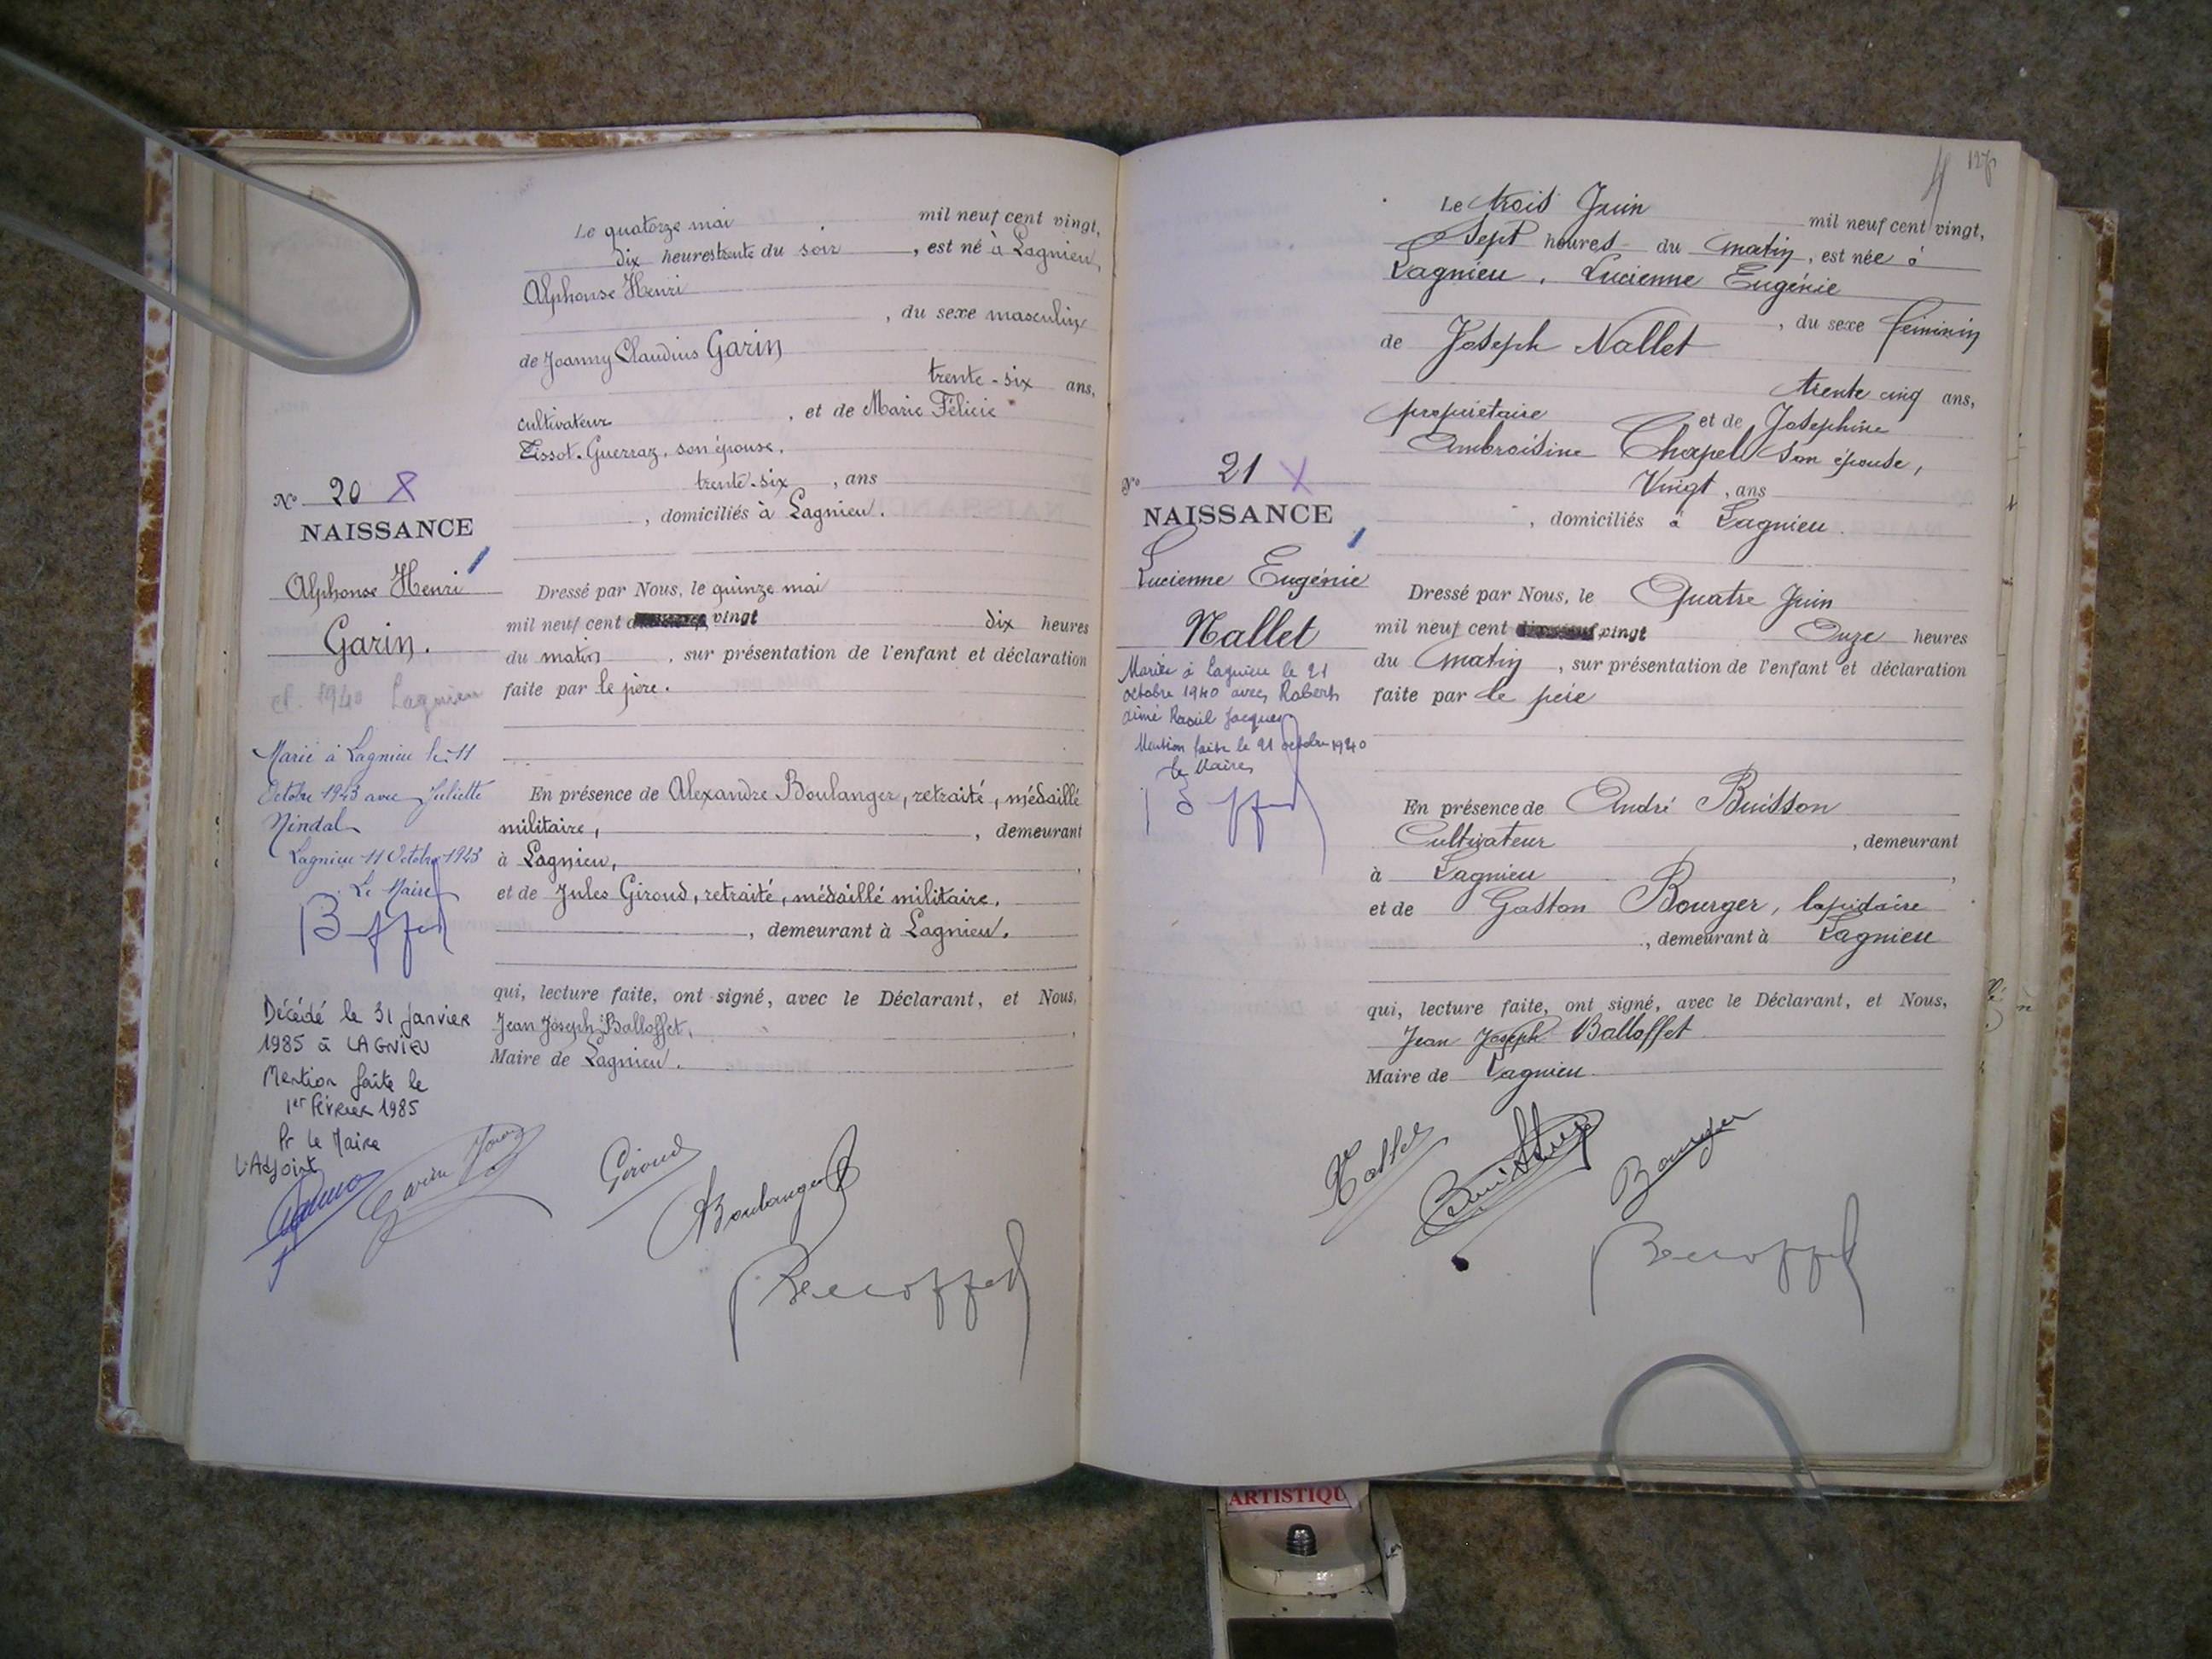 Le quatorze mai mil neuf cent vingt,
dix heures trente du soir, est né à Lagnieu,
Alphonse Henri
, du sexe masculin
de Joanny Claudius Garin
trente-six ans,
cultivateur, et de Marie Félicie
Tissot-Guerraz, son épouse,
trente-six, ans
, domiciliés à Lagnieu.
Nº 20 X
NAISSANCE
Alphonse Henri
Garin.
1940 Lagnieu
Marié à Lagnieu le 11
Octobre 1943 avec Juliette
Nindal
Lagnieu 11 Octobre 1943
Le Maire
Décédé le 31 Janvier
1985 à LAGNIEU
Mention faite le
1er Février 1985
Pr Le Maire
L'Adjoint
Dressé par Nous, le quinze mai
mil neuf cent vingt dix heures
du matin, sur présentation de l'enfant et déclaration
faite par le père.
En présence de Alexandre Boulanger, retraité, médaillé
militaire, , demeurant
à Lagnieu, ,
et de Jules Giroud, retraité, médaillé militaire,
, demeurant à Lagnieu.
qui, lecture faite, ont signé, avec le Déclarant, et Nous,
Jean Joseph Balloffet, ,
Maire de Lagnieu.
Garin Joany
Giroud
Boulanger
127
Le trois Juin mil neuf cent vingt,
Sept heures du matin, est née à
Lagnieu, Lucienne Eugénie
, du sexe féminin
de Joseph Nallet
trente cinq ans,
propriétaire et de Joséphine
Ambroisine Chapel son épouse,
Vingt, ans
, domiciliés à Lagnieu.
Nº 21 X
NAISSANCE
Lucienne Eugénie
Nallet
Mariée à Lagnieu le 21
octobre 1940 avec Robert
Aimé Raoul Jacquer
Mention faite le 21 octobre 1940
Le Maire,
Dressé par Nous, le Quatre Juin
mil neuf cent vingt Onze heures
du matin, sur présentation de l'enfant et déclaration
faite par le père
En présence de André Buisson
Cultivateur, demeurant
à Lagnieu ,
et de Gaston Bourger, lapidaire
, demeurant à Lagnieu
qui, lecture faite, ont signé, avec le Déclarant, et Nous,
Jean Joseph Balloffet
Maire de Lagnieu
Nallet
Buisson
Bourger
ARTISTIQU